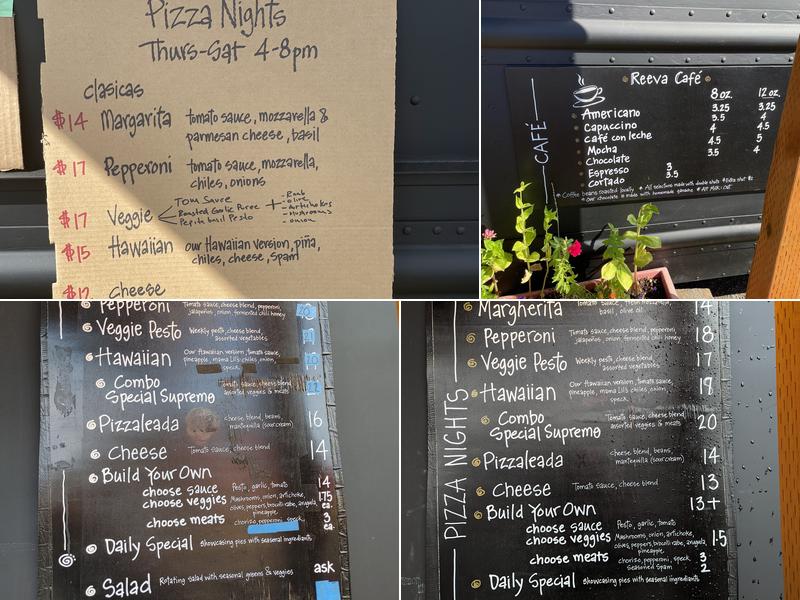 Pizza Nights
Thurs-Sat 4-8pm
clasicas
$14 Margarita tomato sauce, mozzarella &
parmesan cheese, basil
$17 Pepperoni tomato sauce, mozzarella,
chiles, onions
$17 Veggie Tom Sauce
Roasted Garlic Puree
Pepita basil Pesto
+ - Rmb
- olive
- Artichokes
- Mushrooms
- onion
$15 Hawaiian our Hawaiian version, piña,
chiles, cheese, spam
cheese
CAFÉ
Reeva Café
8 oz. 12 oz.
Americano 3.25 3.25
Capuccino 3.5 4
Café con leche 4 4.5
Mocha 4.5 5
Chocolate 3.5 4
Espresso 3
Cortado 3.5
Coffee beans roasted locally All selections made with double shots
Our chocolate is made with homemade ganache
Pepperoni Tomato sauce, cheese blend, pepperoni,
jalapeños, onion, fermented chili honey
Veggie Pesto Weekly pesto, cheese blend,
assorted vegetables
Hawaiian Our Hawaiian version, tomato sauce,
pineapple, mama lil's chiles, onion,
speck
Combo
Special Supremo
Tomato sauce, cheese blend
assorted veggies & meats
Pizzaleada cheese, beans, blend,
mantequilla (sour cream) 16
Cheese Tomato sauce, cheese blend 14
Build Your Own 14
choose sauce Pesto, garlic, tomato
choose veggies Mushrooms, onion, artichoke,
olives, peppers, brocolli rabe, arugula,
pineapple
1.75
ea.
choose meats chorizo, pepperoni, speck, 3
ea.
Daily Special Showcasing pies with seasonal ingredients
Salad Rotating salad with seasonal greens & veggies ask
PIZZA NIGHTS
Margherita Tomato sauce, fresh mozzarella,
basil, olive oil 14
Pepperoni Tomato sauce, cheese blend, pepperoni,
jalapeños, onion, fermented chili honey 18
Veggie Pesto Weekly pesto, cheese blend,
assorted vegetables 17
Hawaiian Our Hawaiian version, tomato sauce,
pineapple, mama lil's chiles, onion,
speck 18
Combo
Special Supremo
Tomato sauce, cheese blend
assorted veggies & meats 20
Pizzaleada cheese blend, beans,
mantequilla (sour cream) 14
Cheese Tomato sauce, cheese blend 13
Build Your Own 13+
choose sauce Pesto, garlic, tomato
choose veggies Mushrooms, onion, artichoke,
olives, peppers, brocolli rabe, arugula,
pineapple 1.5
choose meats chorizo, pepperoni, speck 3
seasoned spam 2
Daily Special Showcasing pies with seasonal ingredients